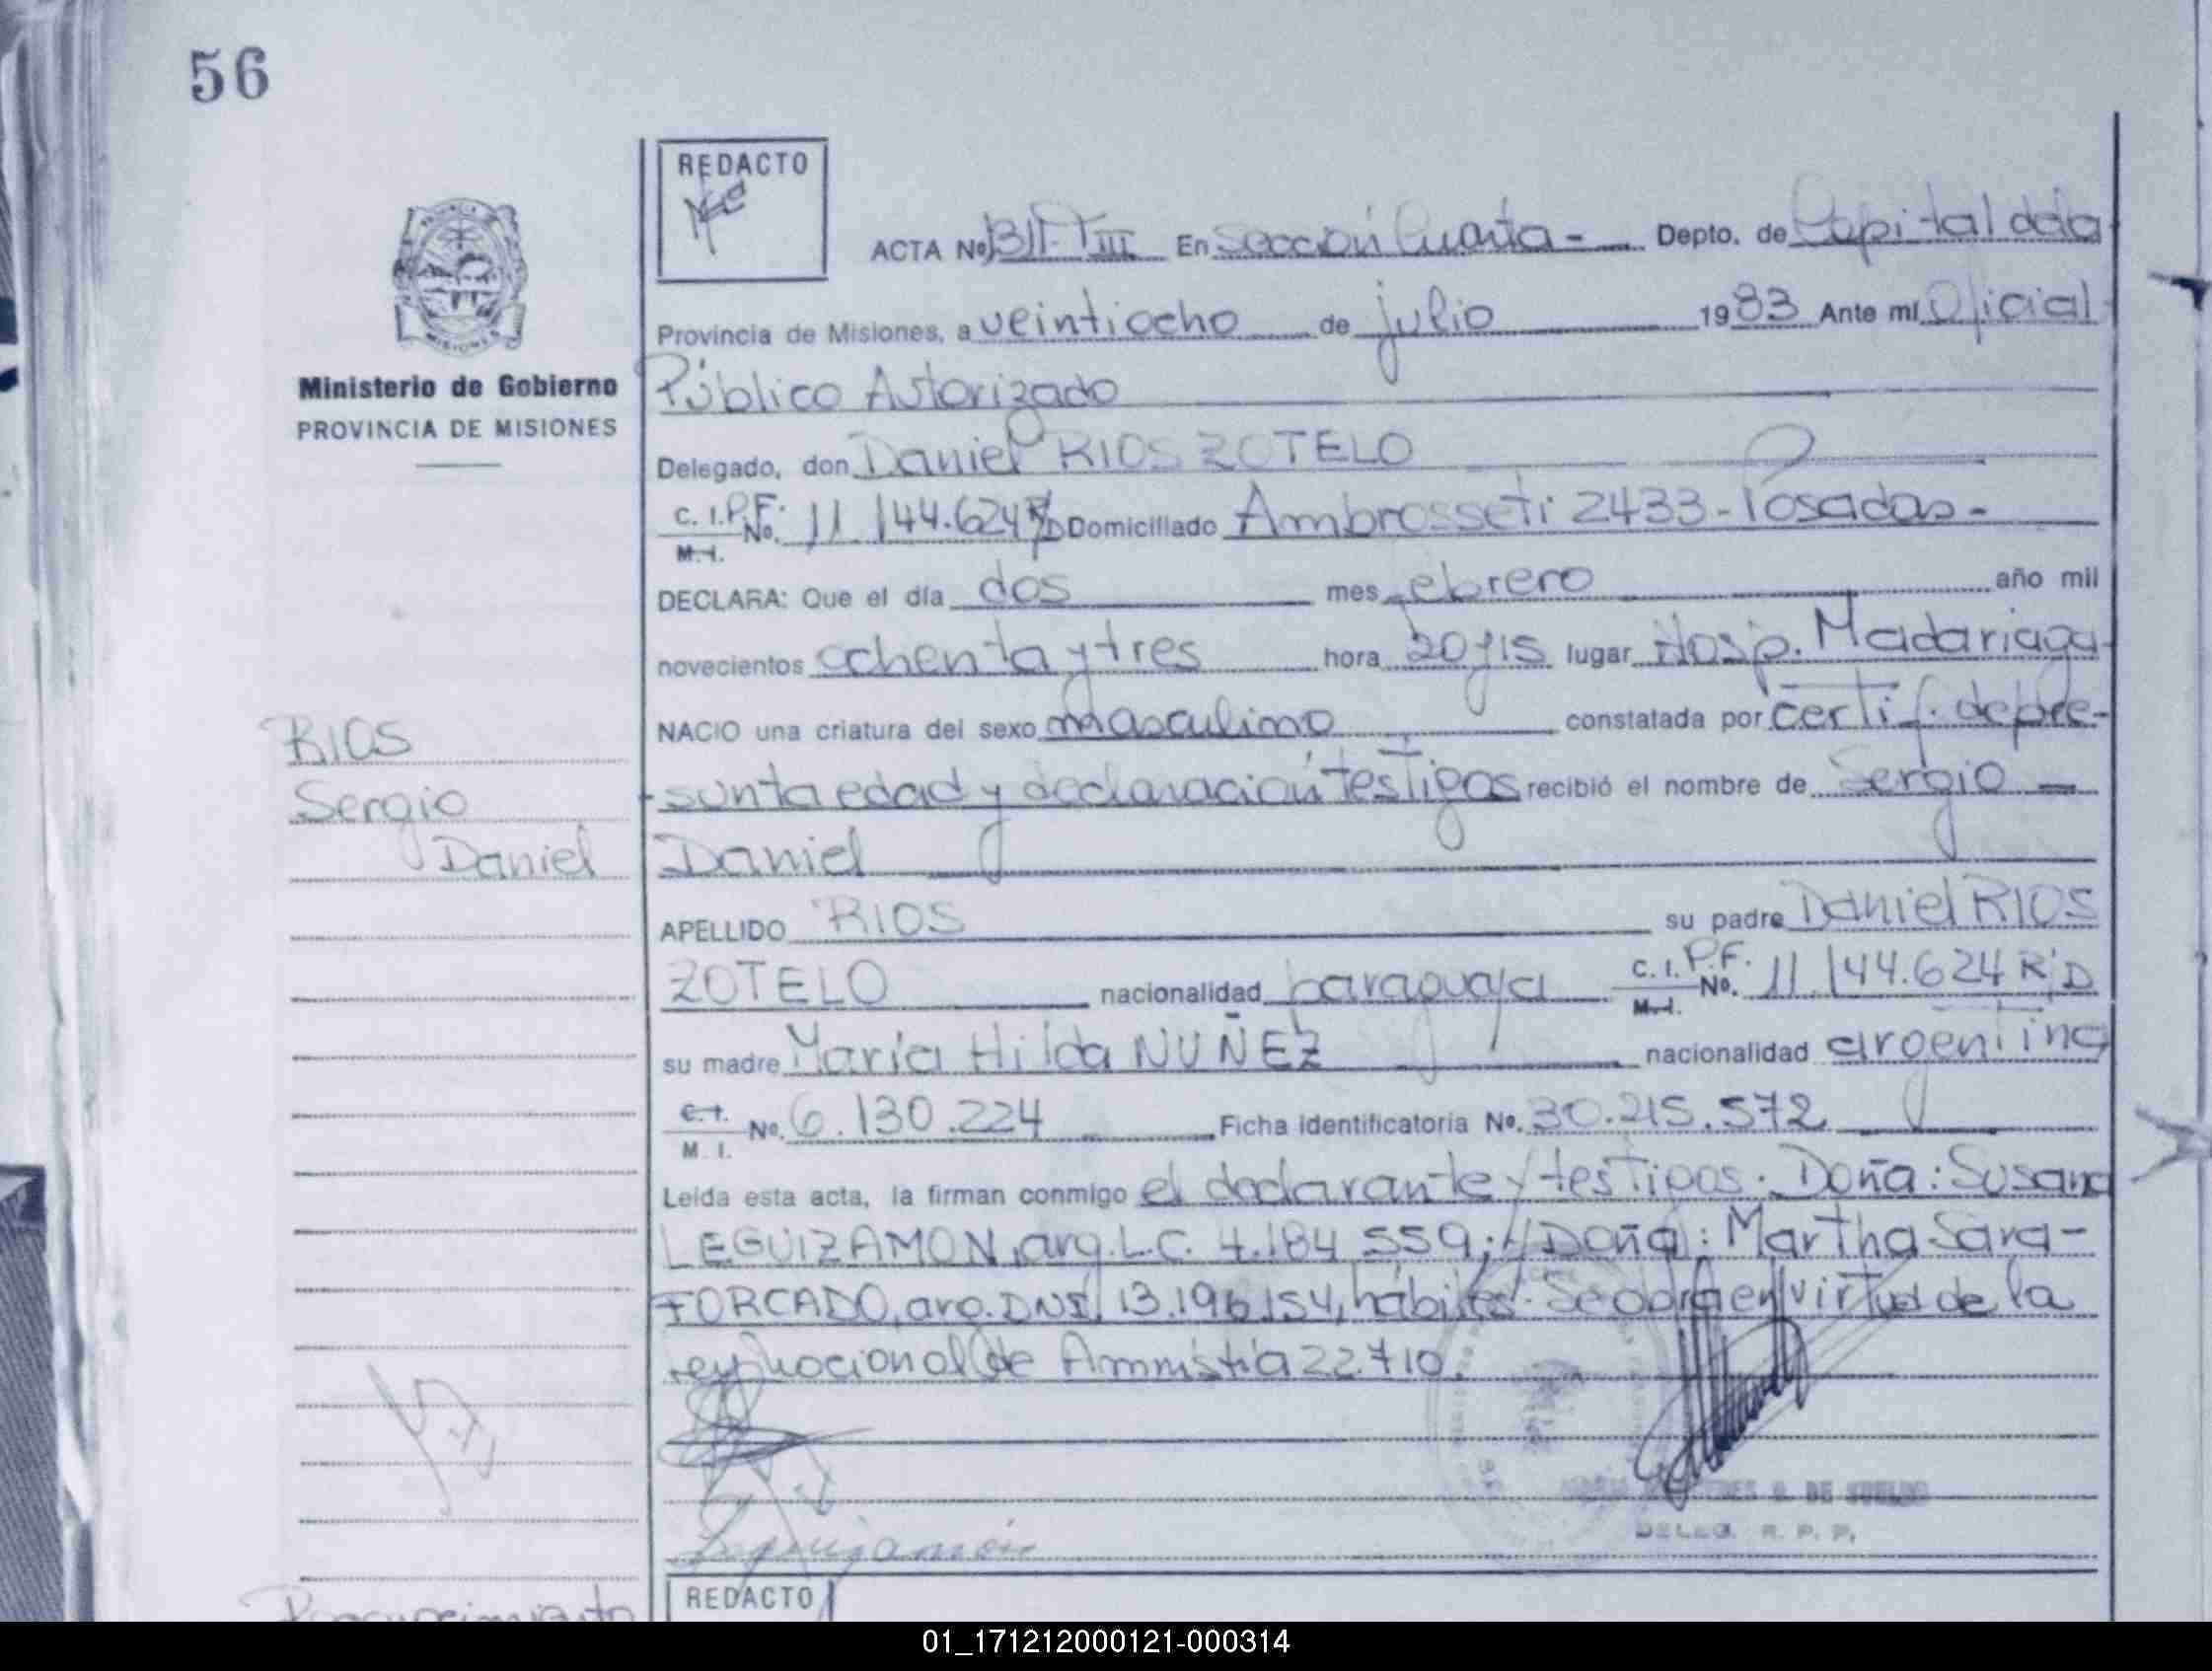 56
REDACTO
ACTA Nº En Sección Cuarta - Depto. de Capital dela
Provincia de Misiones, a veintiocho de julio 1983 Ante mí Oficial
Ministerio de Gobierno
PROVINCIA DE MISIONES
Público Autorizado
Delegado, don Daniel RIOS ZOTELO
C. I. P.F. No. 11.144.624 R/D Domiciliado Ambrosseti 2433 - Posadas -
M. I.
DECLARA: Que el día dos mes febrero año mil
novecientos ochenta y tres hora 20 y 15 lugar Hosp. Madariaga
NACIO una criatura del sexo masculino constatada por certif. de pre-
sunta edad y declaración testigos recibió el nombre de Sergio -
Daniel
RIOS
Sergio
Daniel
APELLIDO RIOS su padre Daniel RIOS
ZOTELO nacionalidad paraguaya C. I. P.F. No. 11.144.624 R/D
M. I.
su madre María Hilda NUÑEZ nacionalidad argentina
C. I. No. 6.130.224 Ficha identificatoria No. 30.215.572
M. I.
Leída esta acta, la firman conmigo el declarante y testigos. Doña: Susana
LEGUIZAMON, arg. L.C. 4.184.559; y Doña: Martha Sara -
FORCADO, arg. DNI. 13.196.154, hábiles. Se obra en virtud de la
Ley Nacional de Amnistía 22.710.
Leguizamón
DE SUELDO
DELEG. R. P. P.
REDACTO
Reconocimiento
01_171212000121-000314